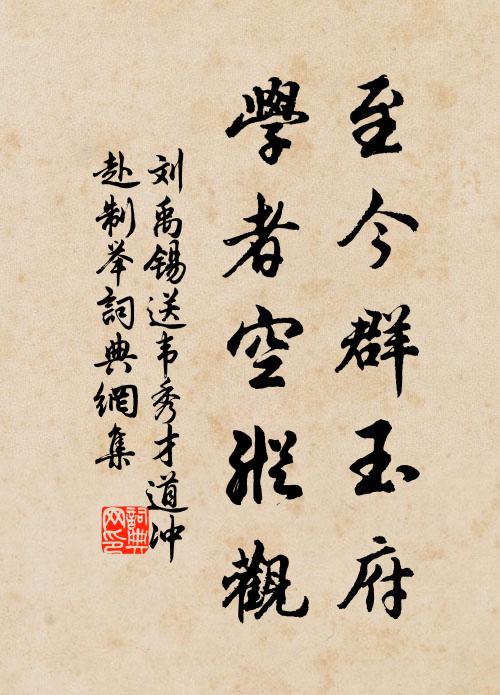 至今群玉府
學者空縱觀
刘禹锡送韦秀才道冲
赴制举詞典網集
詞典網印